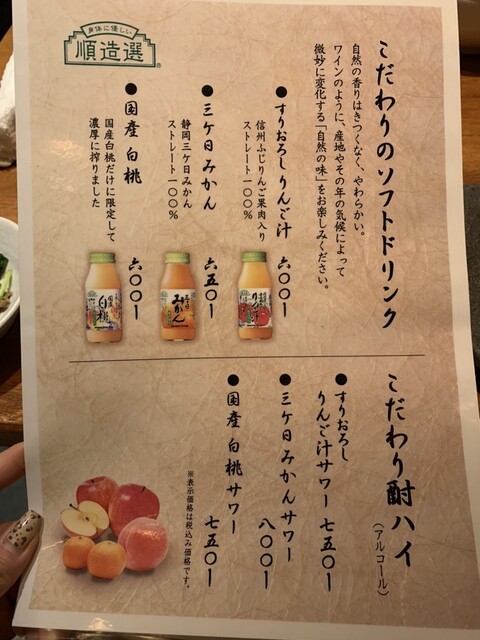 身体に優しい
順造選
こだわりのソフトドリンク
自然の香りはきつくなく、やわらかい。
ワインのように、産地やその年の気候によって
微妙に変化する「自然の味」をお楽しみください。
●すりおろしりんご汁 六〇〇ー
信州ふじりんご果肉入り
ストレート一〇〇%
●三ケ日みかん 六五〇ー
静岡三ケ日みかん
ストレート一〇〇%
●国産 白桃 六〇〇ー
国産白桃だけに限定して
濃厚に搾りました
白桃
みかん
りんご
こだわり酎ハイ
(アルコール)
●すりおろし
りんご汁サワー 七五〇ー
●三ケ日みかんサワー
八〇〇ー
●国産 白桃サワー
七五〇ー
※表示価格は税込み価格です。